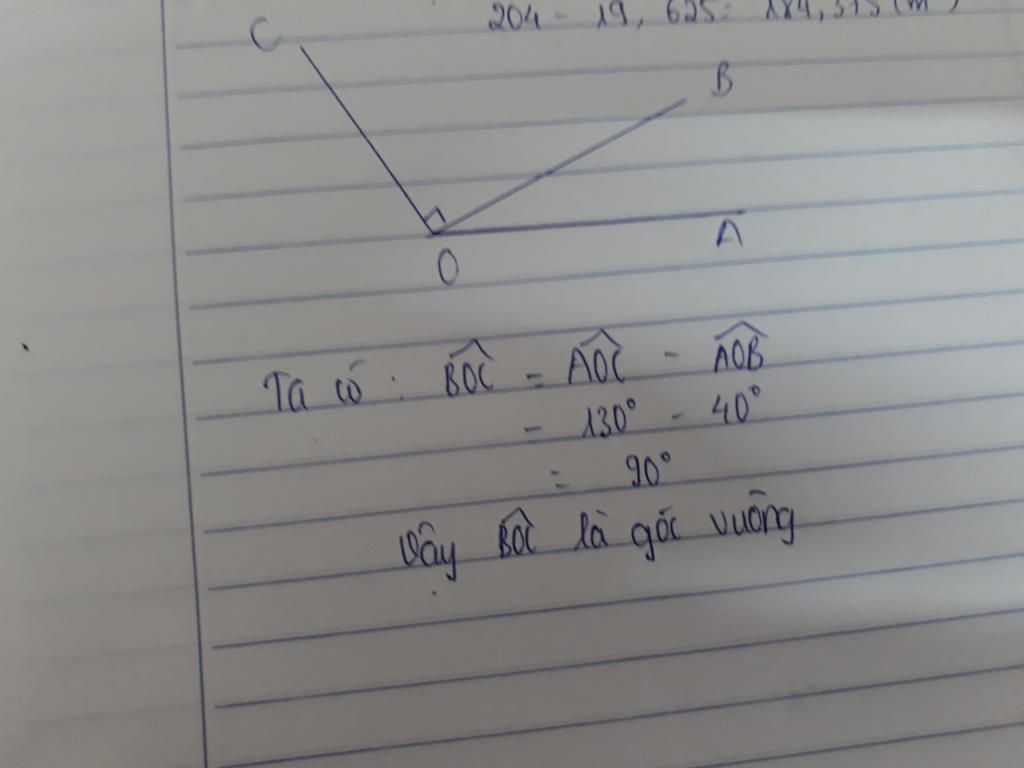 204 - 19,625 = 184,375 (m²)
C
B
A
O
Ta có : BOC = AOC - AOB
= 130° - 40°
= 90°
Vậy BOC là góc vuông